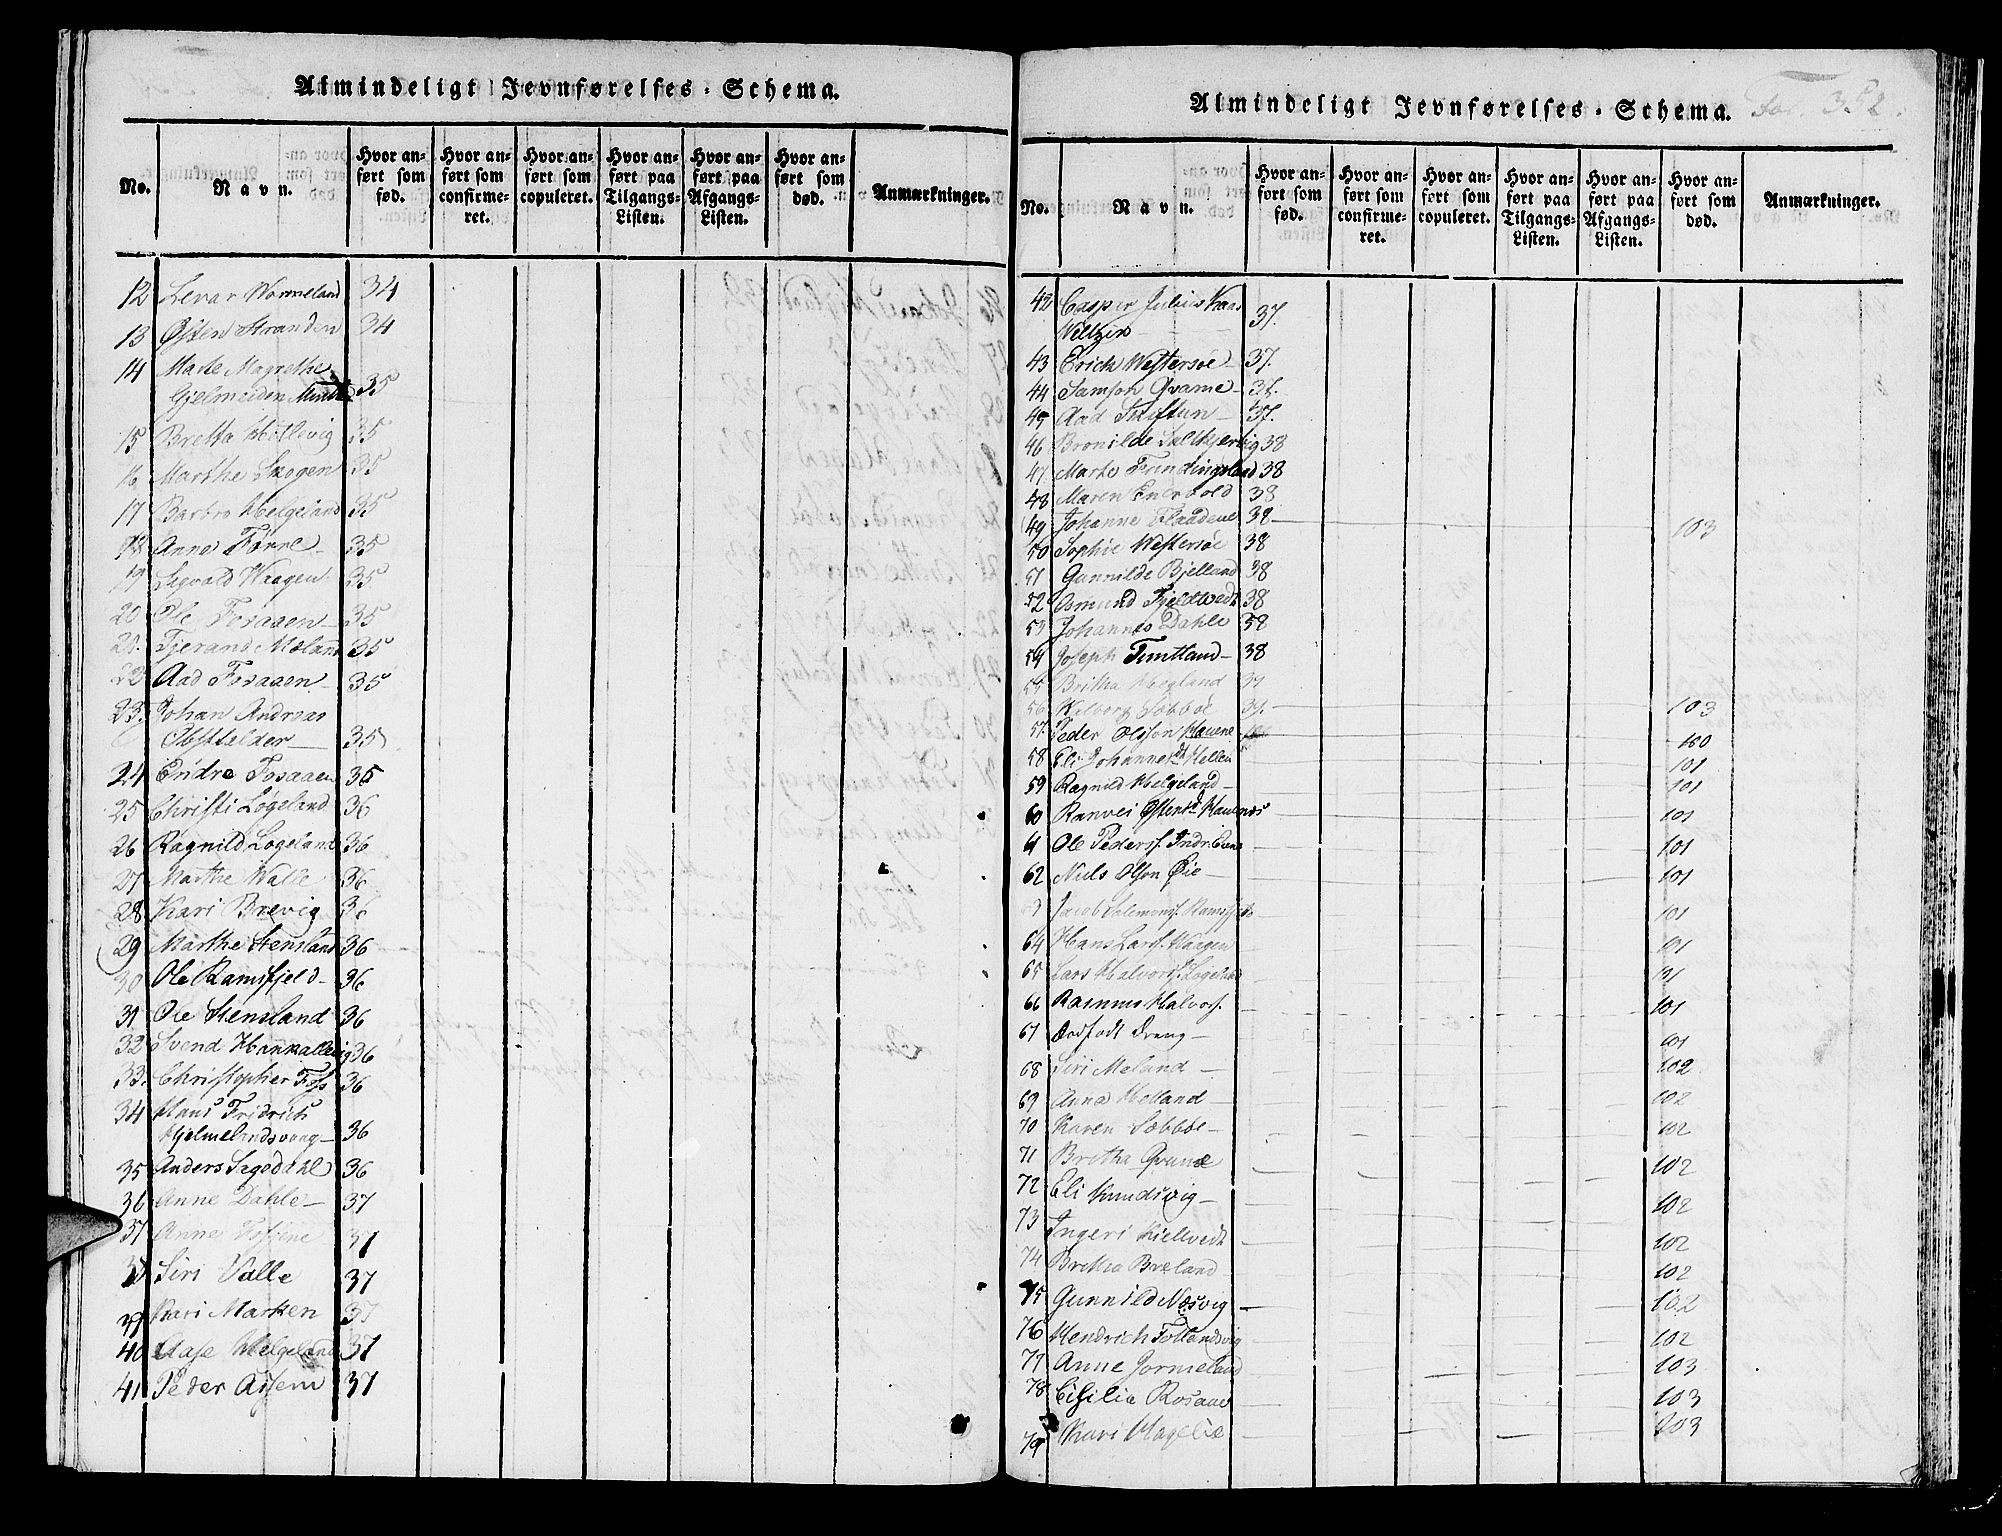 Almindeligt Jevnførelses-Schema.
No. Navn. Hvor anført som fød. Hvor anført som confirmeret. Hvor anført som copuleret. Hvor anført paa Tilgangs-Listen. Hvor anført paa Afgangs-Listen. Hvor anført som død. Anmærkninger.
12 Levar Wormeland 34
13 Østen Stranden 34
14 Marte Magrethe
Gjelmeiden 35
15 Bretta Hetlevig 35
16 Marthe Skogen 35
17 Barbro Helgeland 35
18 Anna Førre 35
19 Sigvald Waagen 35
20 Ole Fosaaen 35
21. Tjerand Mæland 35
22 Aad Fosaaen 35
23. Johan Andreas
Obstfelder 35
24 Endre Fosaaen 35
25 Christi Løgeland 36
26 Ragnild Løgeland 36
27 Marthe Walle 36
28 Kari Brevig 36
29 Marthe Stensland 36
30 Ole Ramsfjeld 36
31 Ole Stensland 36
32 Svend Hankallevig 36
33. Christopher Foss 36
34 Hans Fridrich
Hjelmelandsvaag 36
35 Anders Sagedahl 36
36 Anne Dahle 37
37 Anne 37
38 Siri Valle 37
39 Kari Marken 37
40 Aase Helgeland 37
41 Peder 37
Almindeligt Jevnførelses-Schema. Fol. 352.
No. Navn. Hvor anført som fød. Hvor anført som confirmeret. Hvor anført som copuleret. Hvor anført paa Tilgangs-Listen. Hvor anført paa Afgangs-Listen. Hvor anført som død. Anmærkninger.
42 Casper Julius
Weltzin 37.
43 Erich Westersøe 37.
44 Samson Qvame 37.
45 Aad Tuftun 37.
46 Bronilde 38
47 Marte 38
48 Maren 38
49 Johanne Flaadene 38 103
50 Sophie Westersøe 38
51 Gunnilde Bjelland 38
52 Osmund Fjeldtvedt 38
53 Johannes Dahle 38
54 Joseph Tuntland 38
55 Britha Hegland 39
56 Wilborg Sæbbøe 39. 103
57. Peder Olsson Hauene 100
58 Eli Johannesdt Hellen 101
59 Ragnild Helgeland 101
60 Ranvei Østensd 101
61 Ole Peders. 101
62 Niels Olson Øie 101
Jacob Salomons. 101
64 Hans Lars. Waagen 101
65 Lars Halvors. Løgeland 101
66 Rasmus Halvors. 101
67 Dødfødt Dreng 101
68 Siri Meland 102
69 Anna Helland 102
70 Karen Sæbbøe 102
71 Britha Qvame 102
72 Eli Knudsvig 102
73 Ingeri Kiellvedt 102
74 Britha Breland 102
75 Gunnild Næsvig 102
76 Hendrich Tollandsvig 102
77 Anne Jørmeland 103
78 Cisilia Rosaae 103
79 Kari Hagelie 103